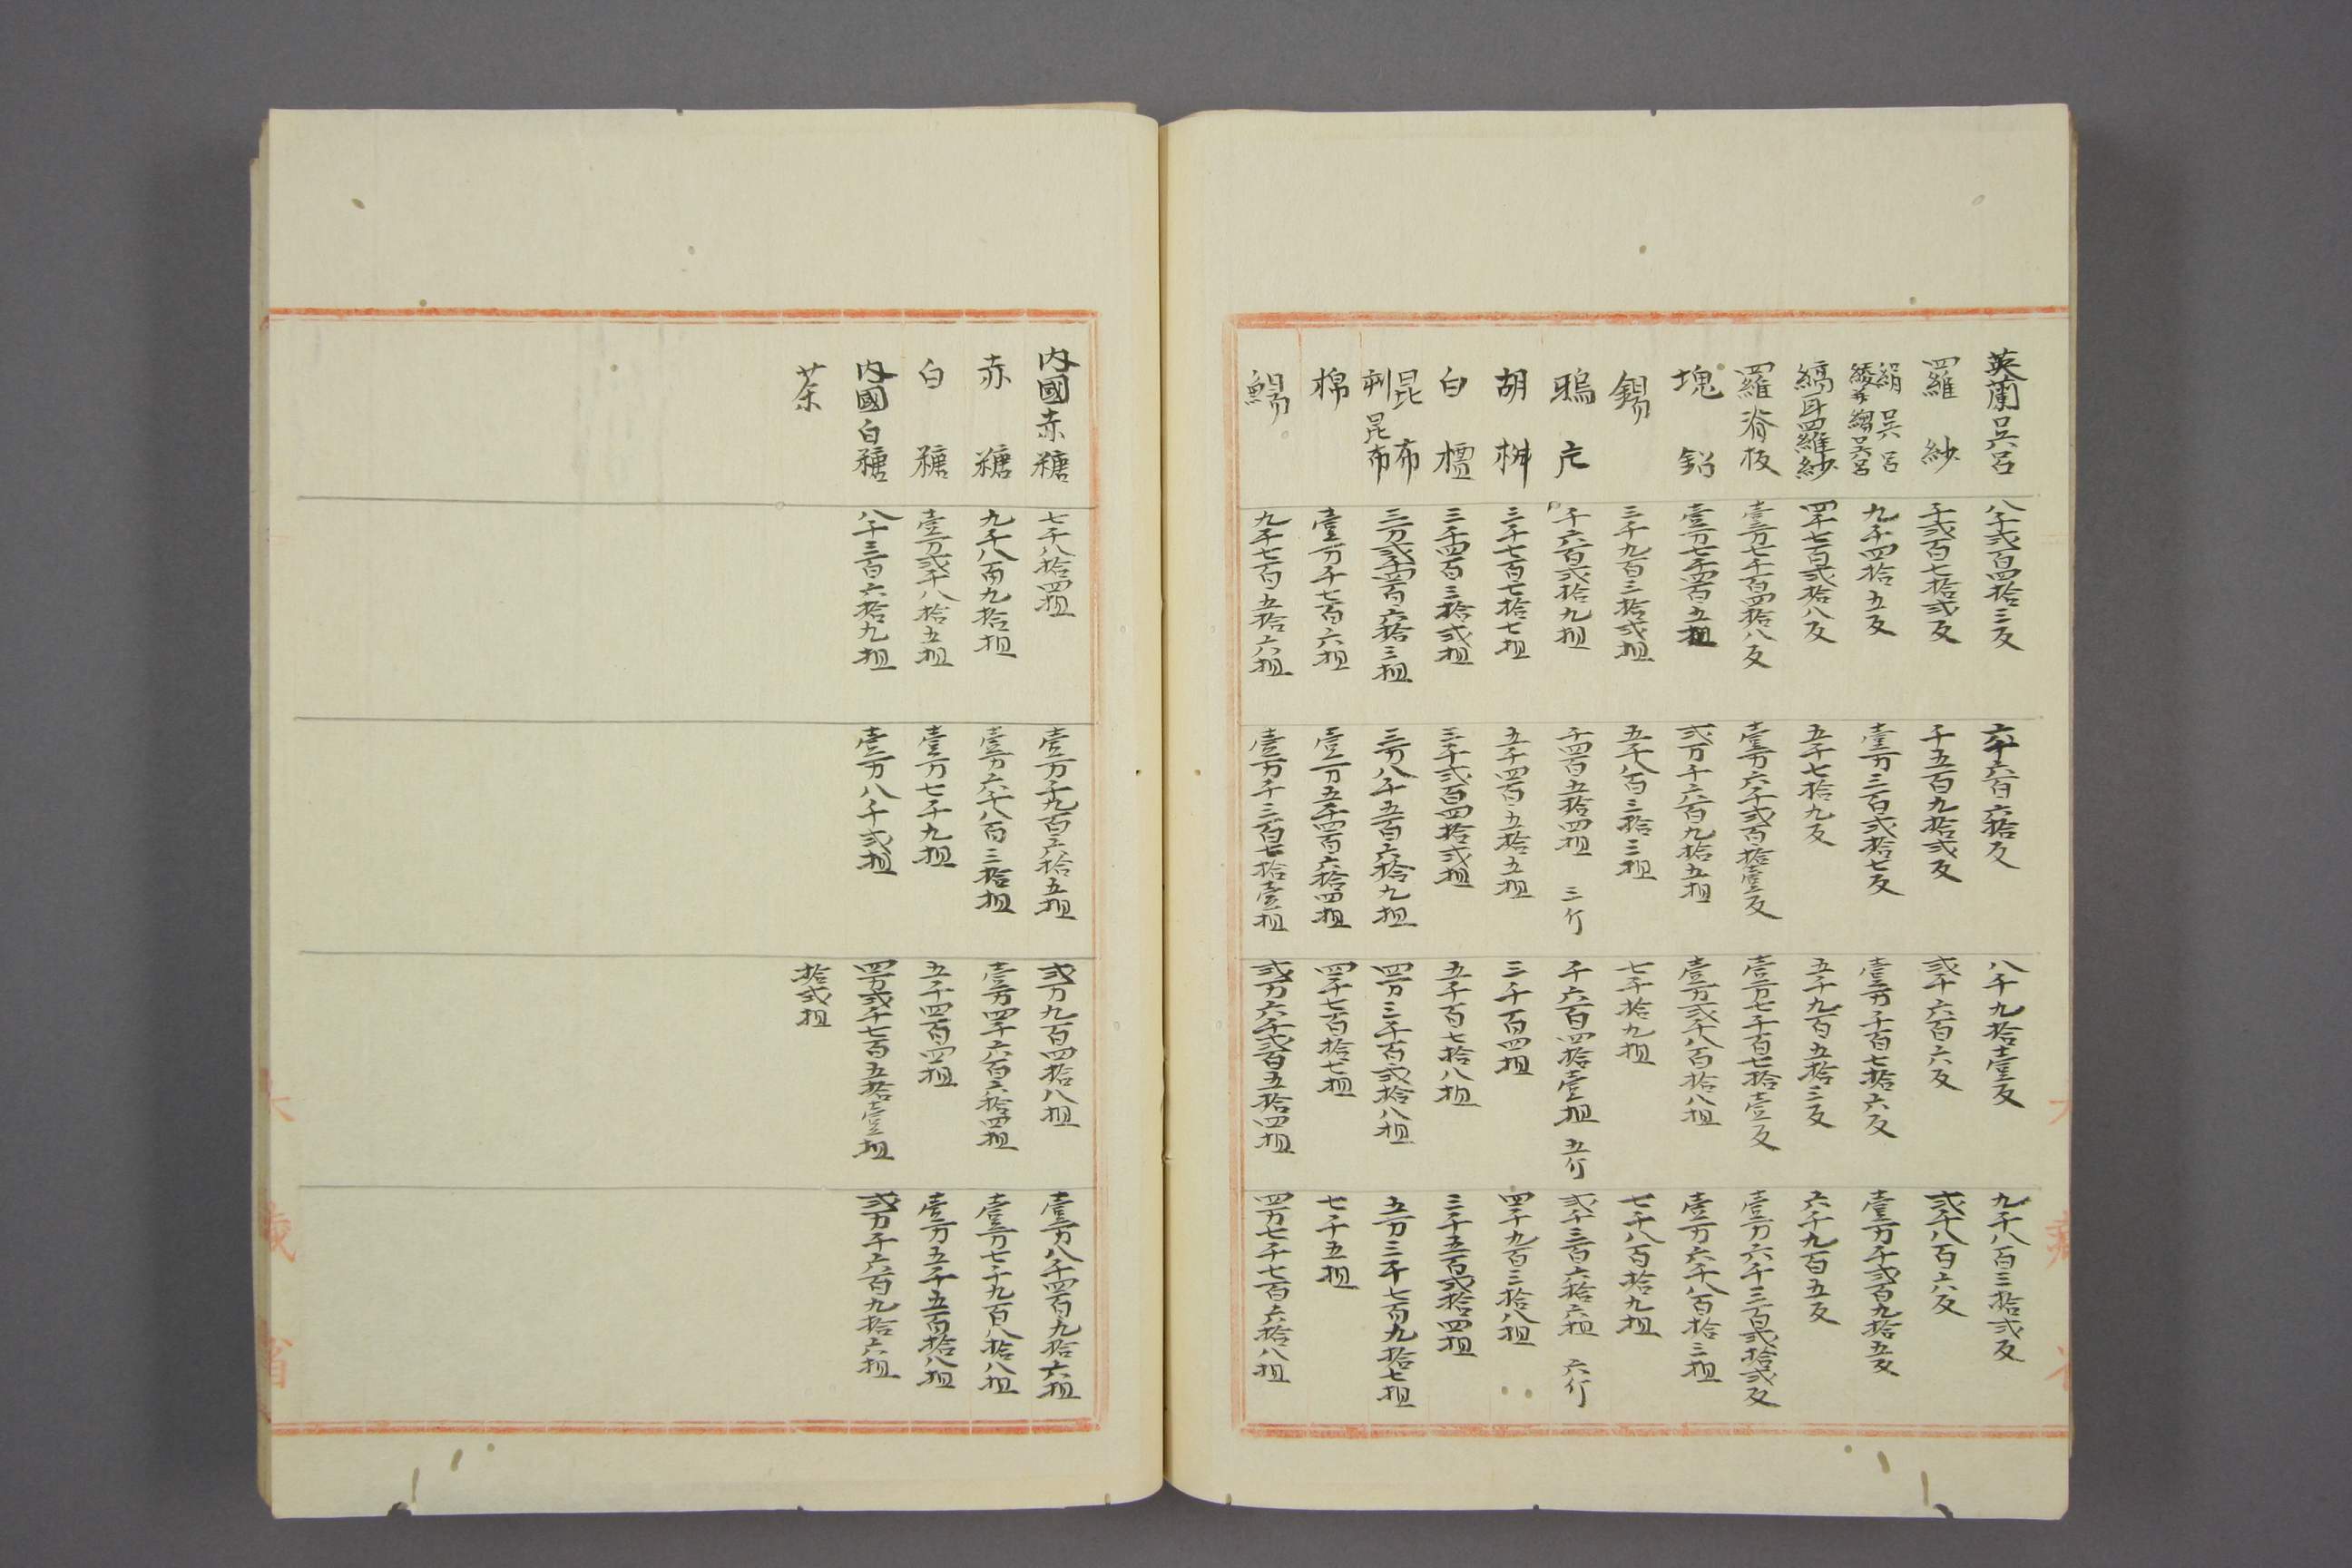 英蘭呉呂 八千弐百四拾三反 六千六百六拾反 八千九拾壹反 九千八百三拾弐反
四羅紗 千弐百七拾弐反 千五百九拾弐反 弐千六百六反 弐千八百六反
絹呉呂 綾并縐呉呂 九千四拾五反 壹万三百弐拾七反 壹万千百七拾六反 壹万千弐百九拾五反
縞耳四羅紗 四千七百弐拾八反 五千七拾九反 五千九百五拾三反 六千九百五反
四羅脊板 壹万七千百四拾八反 壹万六千弐百拾壹反 壹万七千百七拾壹反 壹万六千三百弐拾弐反
塊鉛 壹万七千四百五担 弐万千六百九拾五担 壹万弐千八百拾八担 壹万六千八百拾三担
錫 三千九百三拾弐担 五千八百三拾三担 七千拾九担 七千八百拾九担
鴉片 千六百弐拾九担 千四百五拾四担 三斤 千六百四拾壹担 五斤 弐千三百六拾六担 六斤
胡椒 三千七百七拾七担 五千四百五拾五担 三千百四担 四千九百三拾八担
白檀 三千四百三拾弐担 三千弐百四拾弐担 五千百七拾八担 三千五百弐拾四担
昆布 刺昆布 三万弐千四百六拾三担 三万八千五百六拾九担 四万三千百弐拾八担 五万三千七百九拾七担
棉 壹万千七百六担 壹万五千四百六拾四担 四千七百拾七担 七千五担
鯣 九千七百五拾六担 壹万千三百七拾壹担 弐万六千弐百五拾四担 四万七千七百六拾八担
内國赤糖 七千八拾四担 壹万千九百六拾五担 弐万九百四拾八担 壹万八千四百九拾六担
赤糖 九千八百九拾担 壹万六千八百三拾担 壹万四千六百六拾四担 壹万七千九百八拾八担
白糖 壹万弐千八拾五担 壹万七千九担 五千四百四担 壹万五千五百拾八担
内國白糖 八千三百六拾九担 壹万八千弐担 四万弐千七百五拾壹担 弐万千六百九拾六担
茶 拾弐担
大藏省